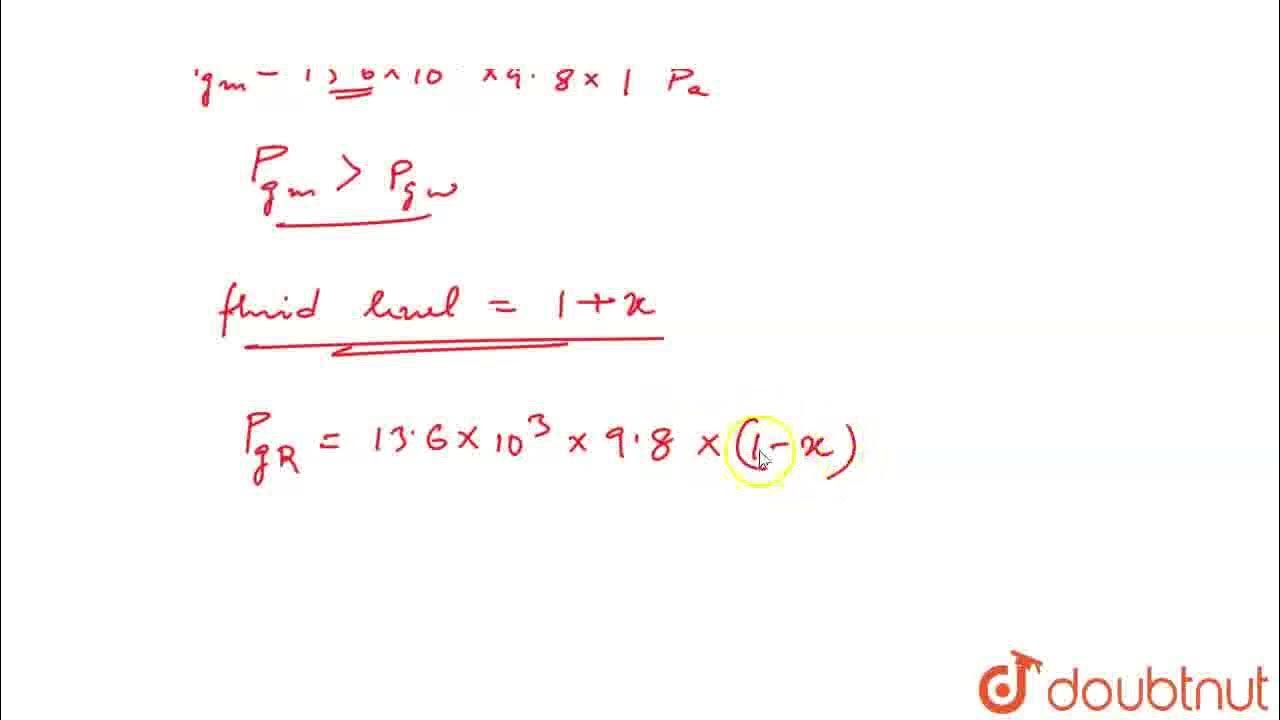 gm = 13.6 × 10 × 9.8 × 1 Pa
P_gm > P_gw
fluid level = 1 + x
P_gR = 13.6 × 10³ × 9.8 × (1 - x)
doubtnut